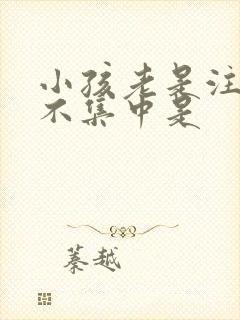 小孩老是注
不集中是
蓁越